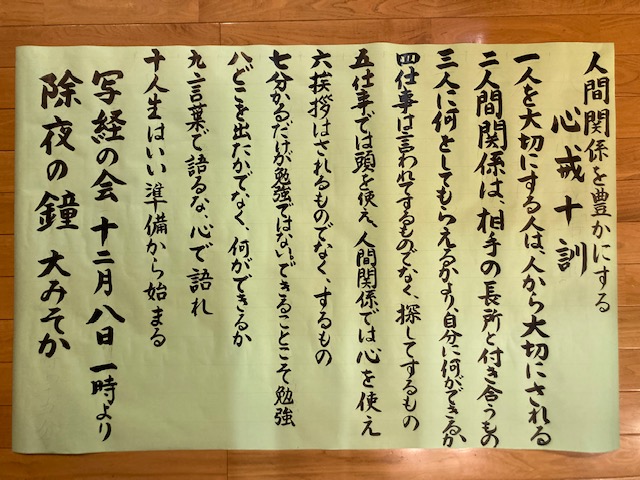 人間関係を豊かにする
心戒十訓
一人を大切にする人は、人から大切にされる
二人間関係は、相手の長所と付き合うもの
三人に何をしてもらえるかより、自分に何ができるか
四仕事は言われてするものでなく、探してするもの
五仕事では頭を使え、人間関係では心を使え
六挨拶はされるものでなく、するもの
七分かるだけが勉強ではない。できることこそ勉強
八どこを出たかでなく、何ができるか
九言葉で語るな、心で語れ
十人生はいい準備から始まる
写経の会 十二月八日 一時より
除夜の鐘 大みそか